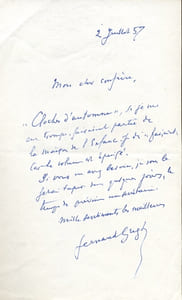 2 Juillet 57
Mon cher confrère,
"Cloches d'automne", si je ne
me trompe, faisaient partie de
la maison de l'Enfance, j'ai dit
car le volume est épuisé.
Si vous en avez besoin, je vous le
ferai taper dans quelques jours, le
temps de prévenir
Mille sentiments les meilleurs
Fernand Gregh